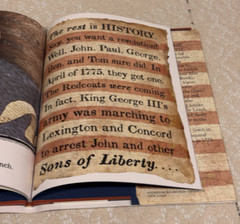 The rest is HISTORY
You you want a revolution?
Well, John, Paul, George,
Ben, and Tom sure did. In
April of 1775, they got one.
The Redcoats were coming.
In fact, King George III's
army was marching to
Lexington and Concord
to arrest John and other
Sons of Liberty. . . .
nch.